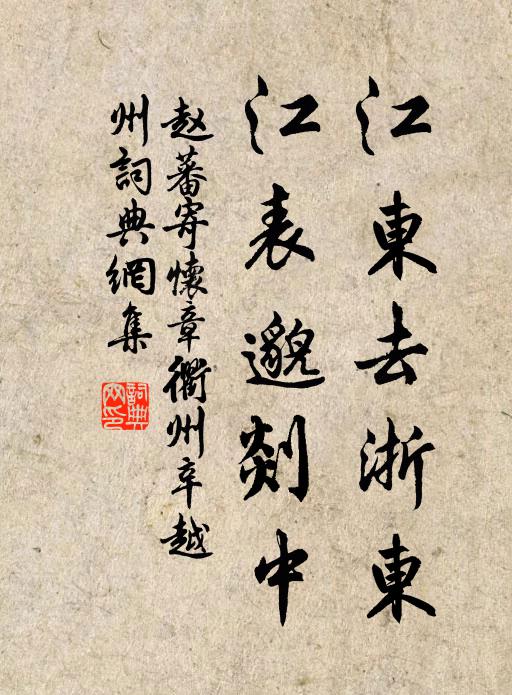 江東去浙東
江表邈剡中
赵蕃寄懷章衢州辛越
州詞典網集
詞典
网印